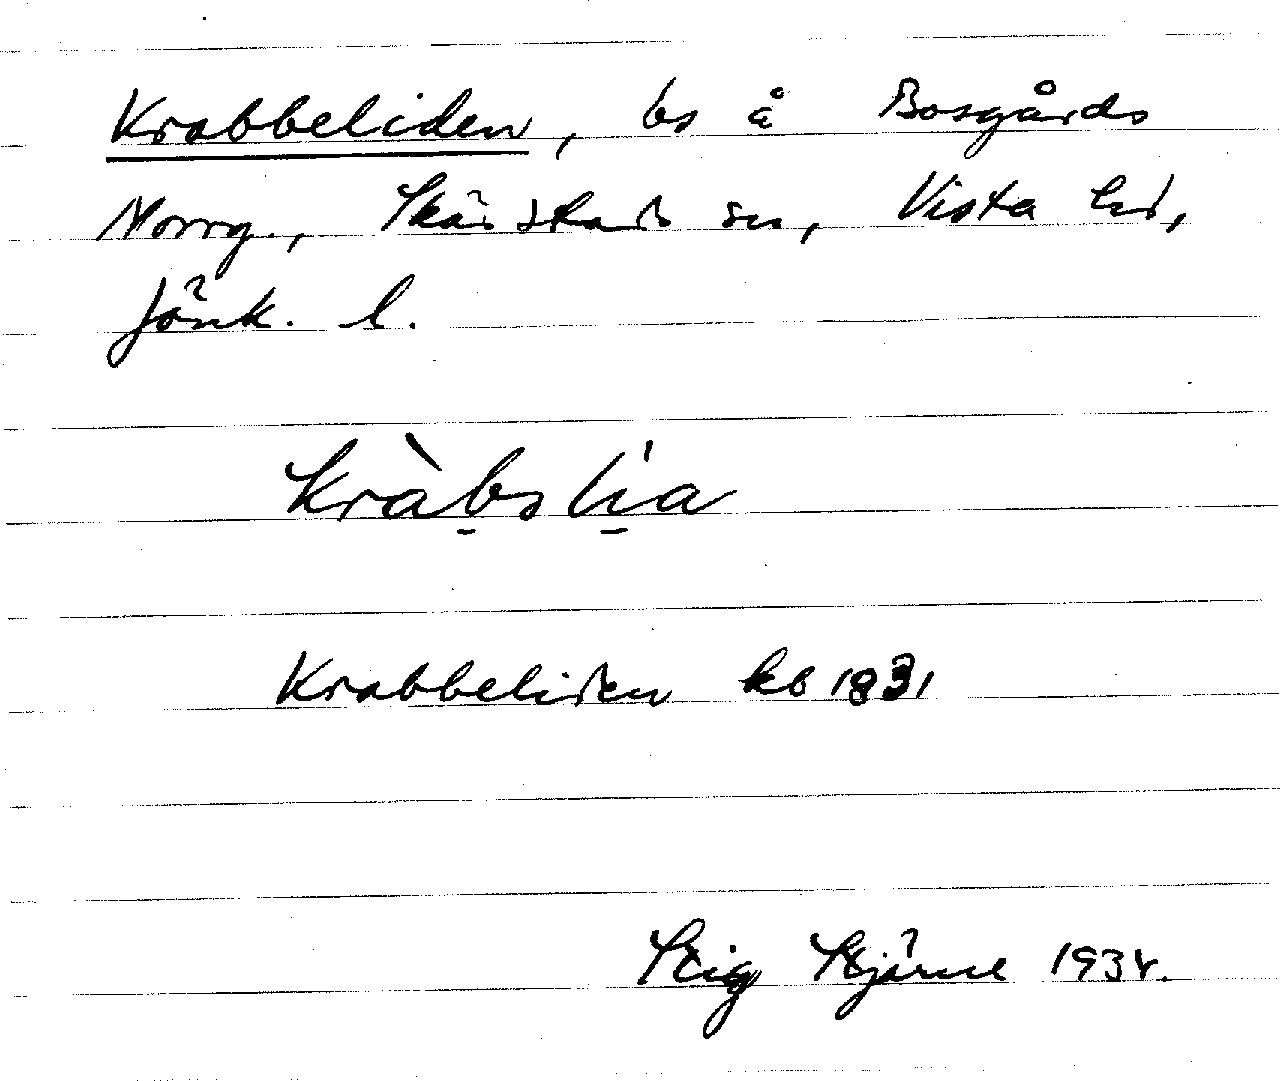 Krabbeliden, bs å Bosgårds
Norrg., Skärstads sn, Vista hd,
Jönk. l.
kràbslia
Krabbeliden kb 1831
Stig Stjärne 193